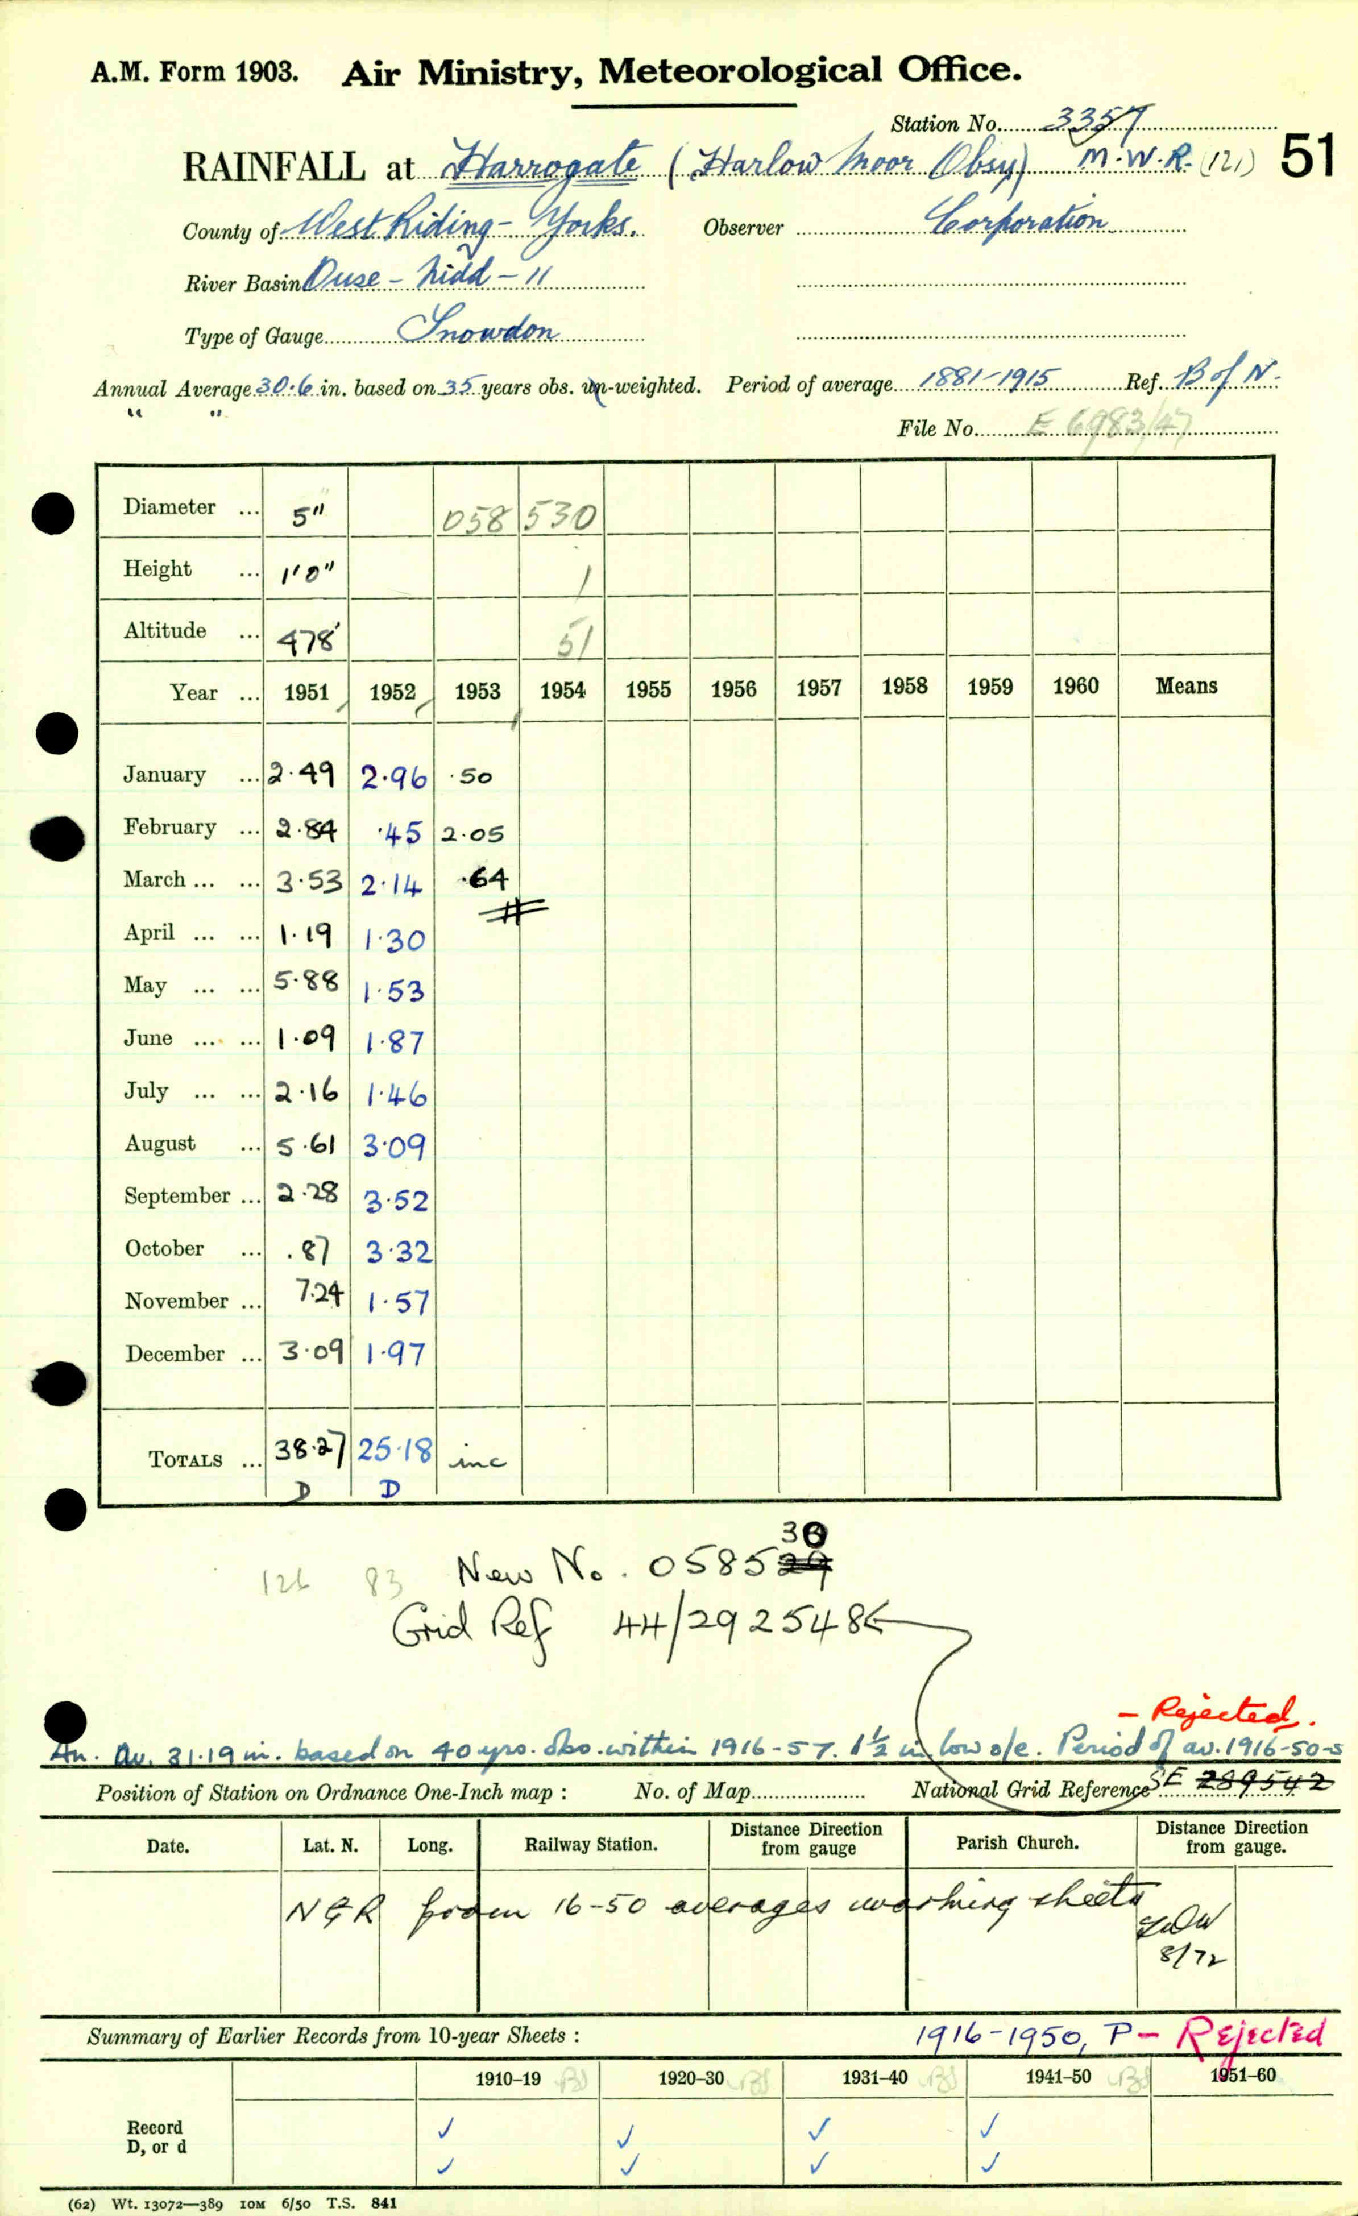 A.M. Form 1903. Air Ministry, Meteorological Office.
Station No. 3357
RAINFALL at Harrogate (Harlow Moor Obsy) M.W.R. (121) 51
County of West Riding - Yorks. Observer Corporation
River Basin Ouse - Nidd - 11
Type of Gauge Snowdon
Annual Average 30.6 in. based on 35 years obs. un-weighted. Period of average 1881-1915 Ref. B of N.
" "
File No. E 6983/47
Diameter ... 5" 058 530
Height ... 1'0" 1
Altitude ... 478' 51
Year ... 1951 1952 1953 1954 1955 1956 1957 1958 1959 1960 Means
January ... 2.49 2.96 .50
February ... 2.84 .45 2.05
March ... ... 3.53 2.14 .64
April ... ... 1.19 1.30
May ... ... 5.88 1.53
June ... ... 1.09 1.87
July ... ... 2.16 1.46
August ... 5.61 3.09
September ... 2.28 3.52
October ... .87 3.32
November ... 7.24 1.57
December ... 3.09 1.97
TOTALS ... 38.27 25.18 inc
D D
30
126 83 New No. 058529
Grid Ref 44/292548
- Rejected.
An. Av. 31.19 in. based on 40 yrs. obs. within 1916-57. 1½ in low o/e. Period of av. 1916-50-s
Position of Station on Ordnance One-Inch map : No. of Map National Grid Reference SE 289542
Date. Lat. N. Long. Railway Station. Distance from Direction gauge Parish Church. Distance from Direction gauge.
NGR from 16-50 averages working sheets
8/72
Summary of Earlier Records from 10-year Sheets : 1916-1950, P - Rejected
1910–19 1920–30 1931–40 1941–50 1951–60
Record ✓ ✓ ✓ ✓
D, or d ✓ ✓ ✓ ✓
(62) Wt. 13072—389 10M 6/50 T.S. 841